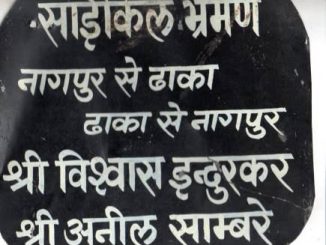 साईकिल भ्रमण
नागपुर से ढाका
ढाका से नागपुर
श्री विश्वास इन्दुरकर
श्री अनील साम्बरे